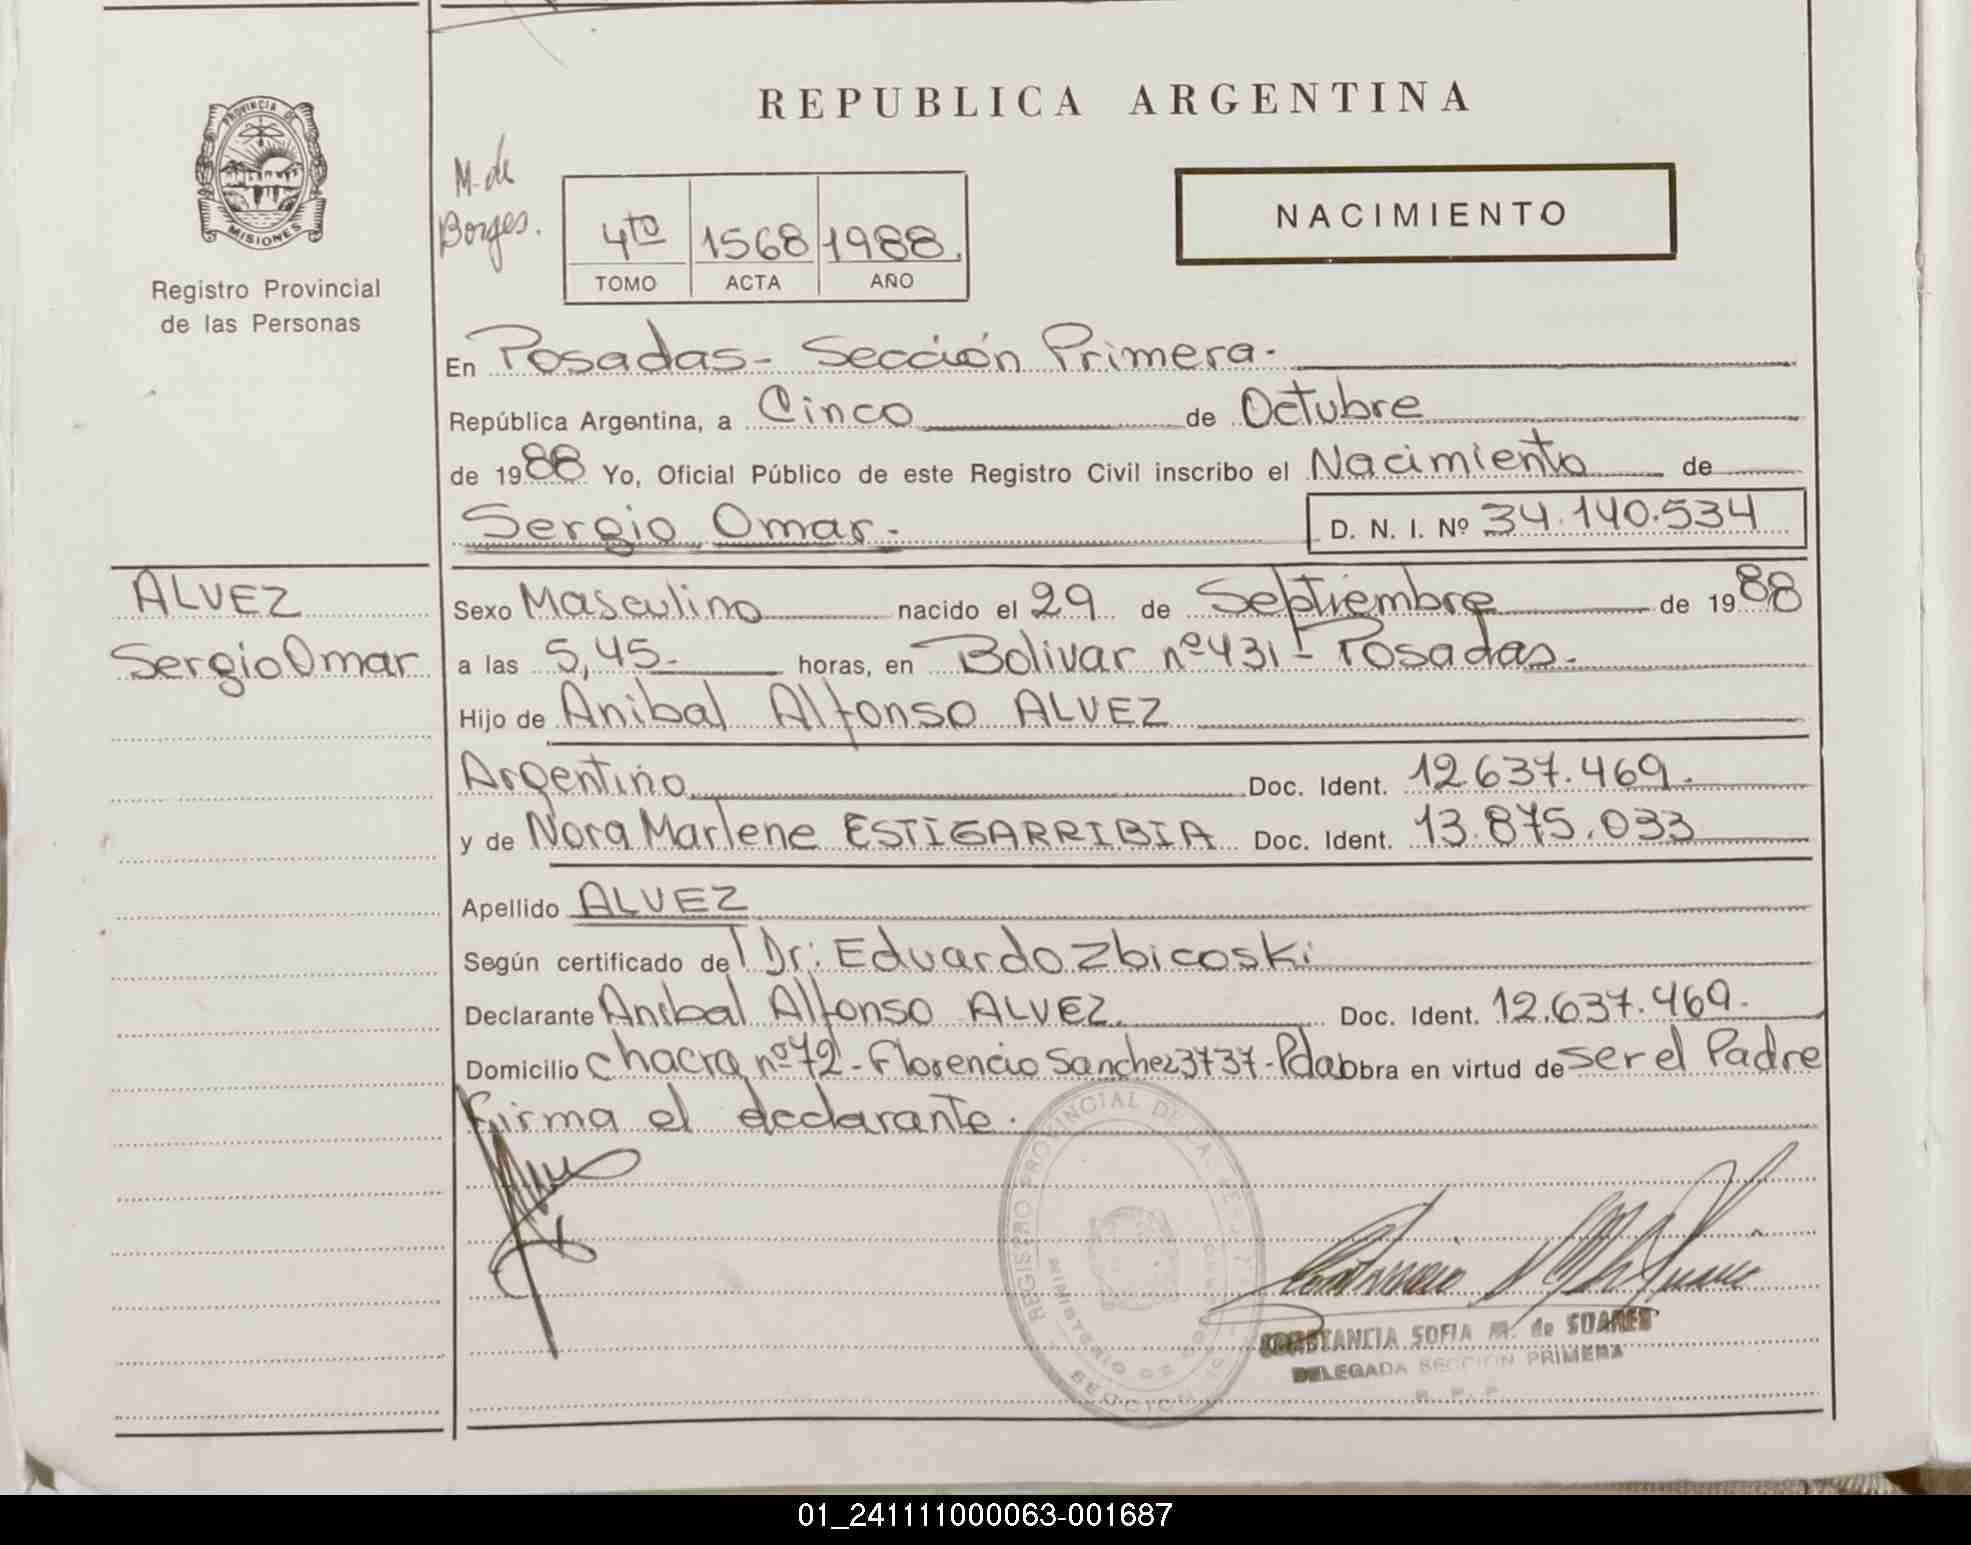 REPUBLICA ARGENTINA
PROVINCIA DE
MISIONES
Registro Provincial
de las Personas
M. de
Borges.
4to 1568 1988.
TOMO ACTA AÑO
NACIMIENTO
En Posadas - Sección Primera -
República Argentina, a Cinco de Octubre
de 1988 Yo, Oficial Público de este Registro Civil inscribo el Nacimiento de
Sergio Omar - D. N. I. Nº 34.140.534
ALVEZ
Sergio Omar
Sexo Masculino nacido el 29 de Septiembre de 1988
a las 5,45- horas, en Bolivar nº 431 - Posadas.
Hijo de Anibal Alfonso ALVEZ
Argentino Doc. Ident. 12.637.469.
y de Nora Marlene ESTIGARRIBIA Doc. Ident. 13.875.033
Apellido ALVEZ
Según certificado del Dr: Eduardo Zbicoski
Declarante Anibal Alfonso ALVEZ. Doc. Ident. 12.637.469.
Domicilio chacra nº 72 - Florencio Sanchez 3737 - Pdas Obra en virtud de ser el Padre
Firma el declarante.
REGISTRO PROVINCIAL DE LAS
MINISTERIO DE
SECCION
CONSTANCIA SOFIA M. de SUARES
DELEGADA SECCION PRIMERA
R. P. P.
01_241111000063-001687